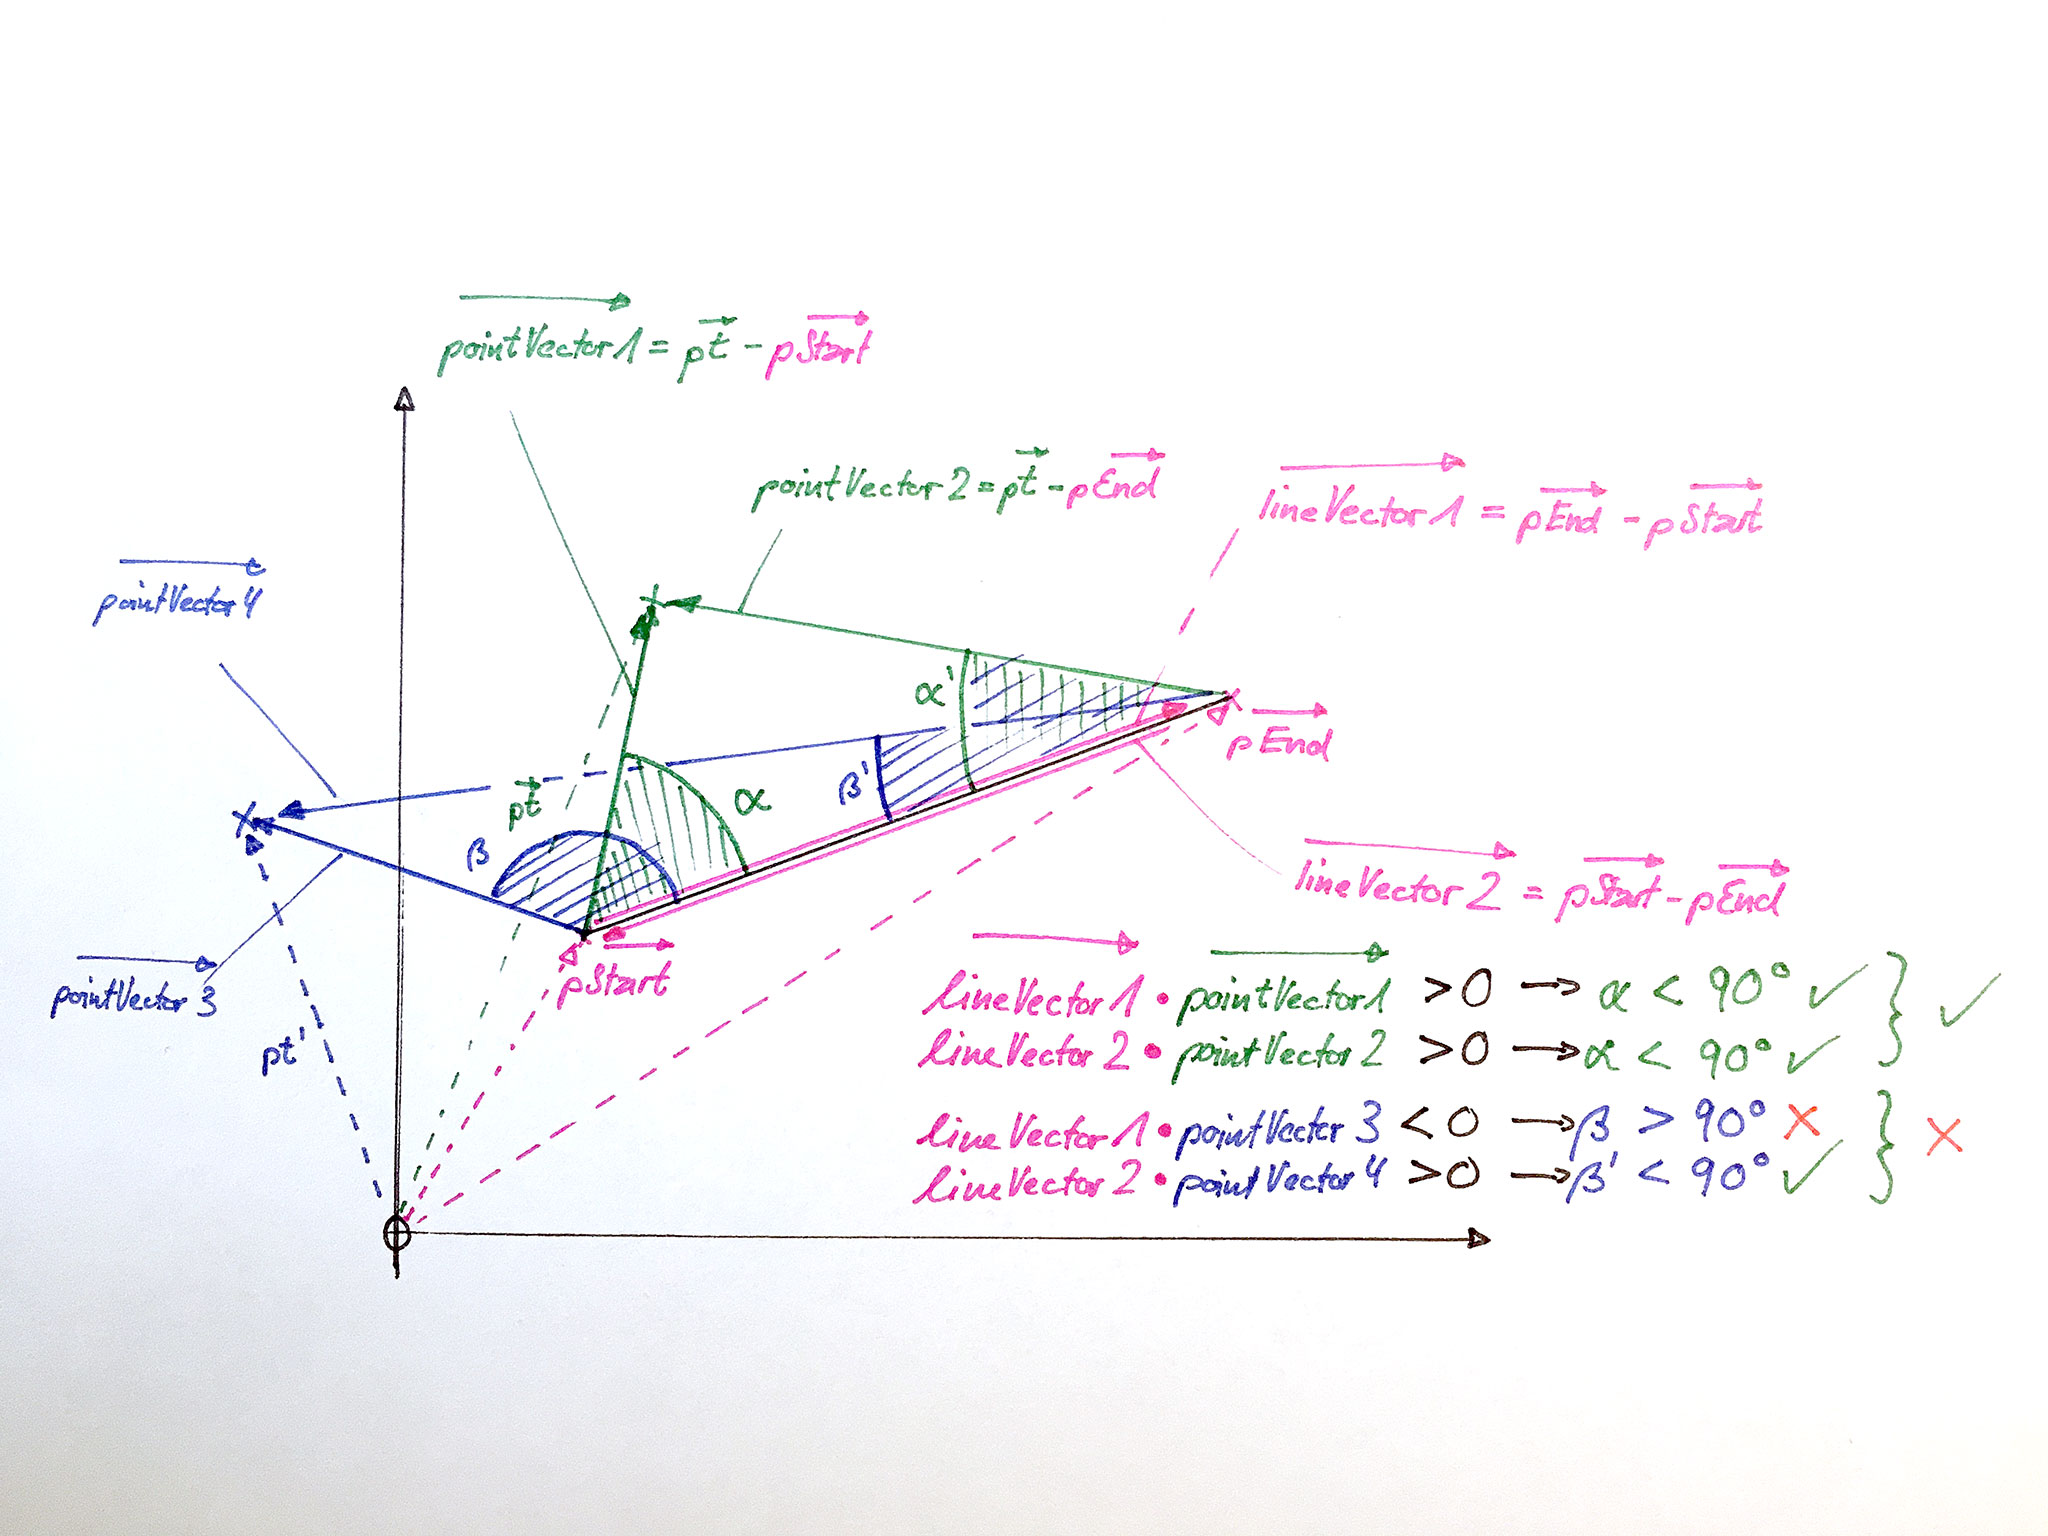 pointVector1 = pt - pStart
pointVector2 = pt - pEnd
lineVector1 = pEnd - pStart
pointVector4
α'
pEnd
β'
pt
α
β
lineVector2 = pStart - pEnd
pStart
pointVector3
pt'
lineVector1 • pointVector1 >0 → α < 90° ✓ } ✓
lineVector2 • pointVector2 >0 → α < 90° ✓
lineVector1 • pointVector3 <0 → β > 90° × } ×
lineVector2 • pointVector4 >0 → β' < 90° ✓